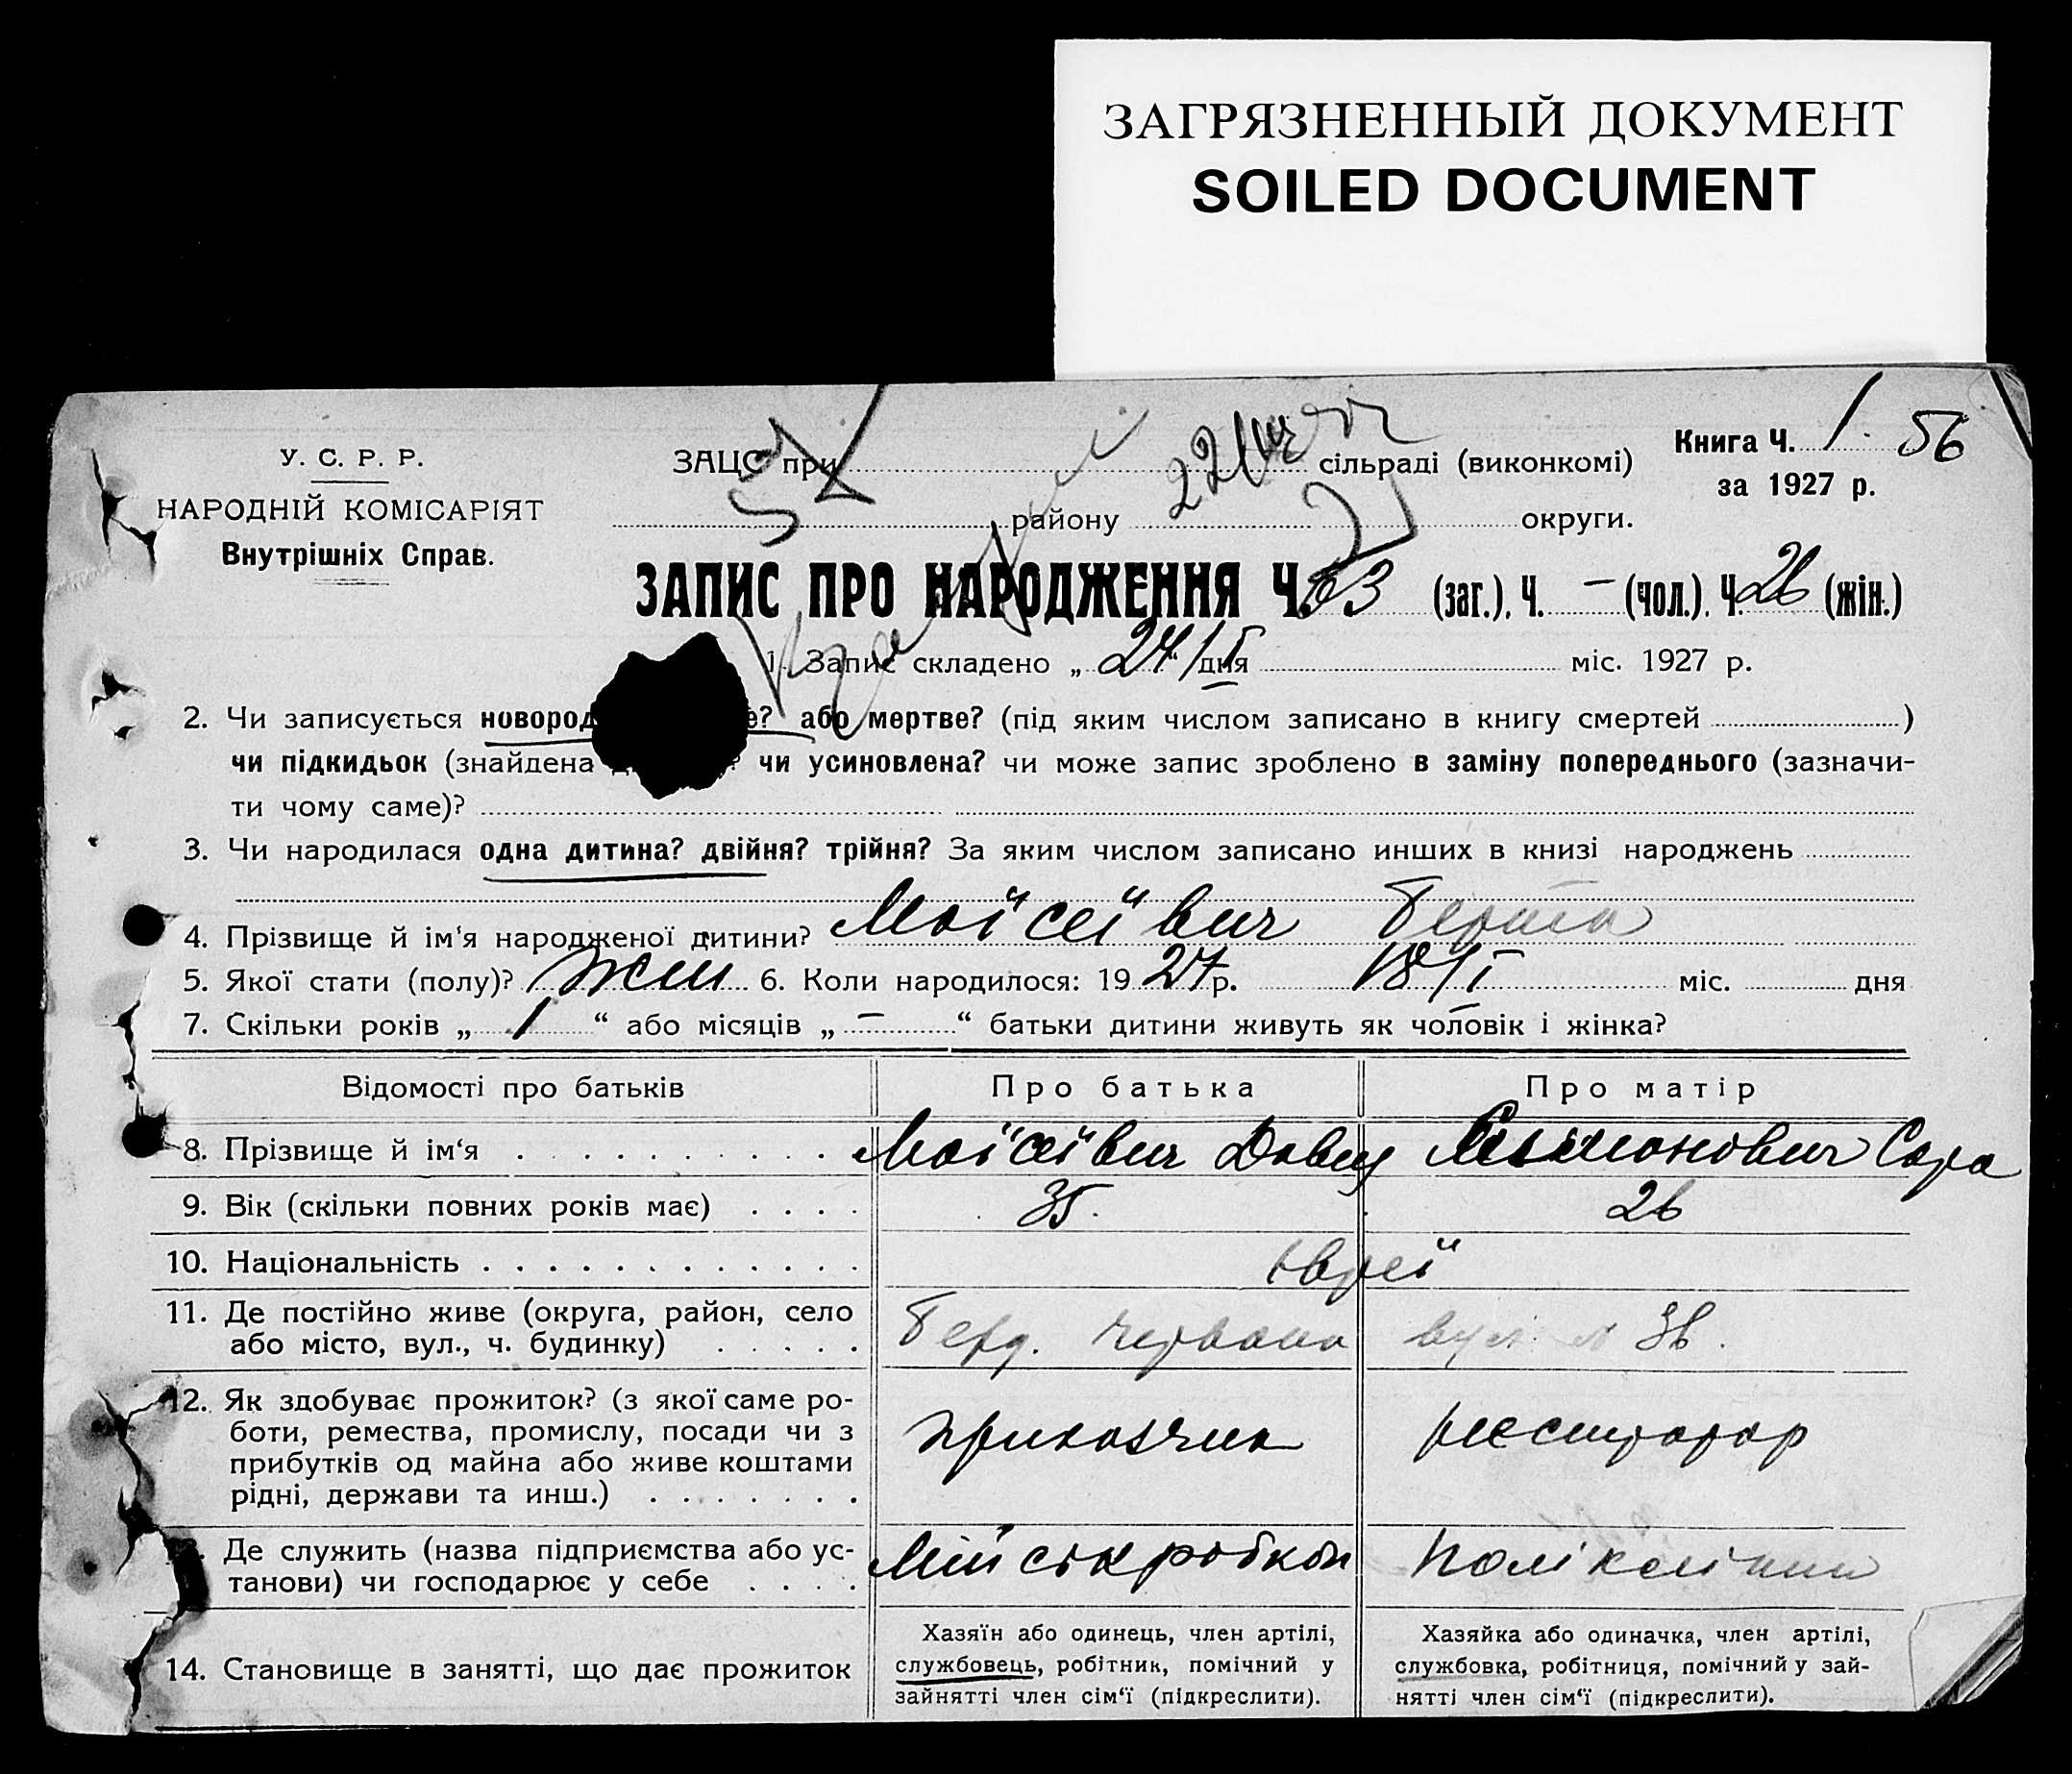 ЗАГРЯЗНЕННЫЙ ДОКУМЕНТ
SOILED DOCUMENT
У. С. Р. Р.
НАРОДНІЙ КОМІСАРІЯТ
Внутрішніх Справ.
ЗАЦС при сільраді (виконкомі)
району округи.
Книга Ч. 1. 56
за 1927 р.
ЗАПИС ПРО НАРОДЖЕННЯ Ч. 53 (заг.), Ч. — (чол.), Ч. 26 (жін.)
1. Запис складено „ 24/I “ дня міс. 1927 р.
2. Чи записується новород е? або мертве? (під яким числом записано в книгу смертей )
чи підкидьок (знайдена ? чи усиновлена? чи може запис зроблено в заміну попереднього (зазначи-
ти чому саме)?
3. Чи народилася одна дитина? двійня? трійня? За яким числом записано инших в книзі народжень
4. Прізвище й ім‘я народженої дитини? Моїсеївич Берта
5. Якої стати (полу)? жін 6. Коли народилося: 1927 р. 18/I міс. дня
7. Скільки років „ 1 “ або місяців „ — “ батьки дитини живуть як чоловік і жінка?
Відомості про батьків Про батька Про матір
8. Прізвище й ім‘я Моїсеївич Давид Сара
9. Вік (скільки повних років має) 35. 26
10. Національність Євреї
11. Де постійно живе (округа, район, село
або місто, вул., ч. будинку) Берд. Червона вул. № 36.
12. Як здобуває прожиток? (з якої саме ро-
боти, ремества, промислу, посади чи з
прибутків од майна або живе коштами
рідні, держави та инш.) приказчик реєстратор
Де служить (назва підприємства або ус-
танови) чи господарює у себе Міськробкоп Поліклініки
14. Становище в занятті, що дає прожиток
Хазяїн або одинець, член артілі,
службовець, робітник, помічний у
зайнятті член сім‘ї (підкреслити).
Хазяйка або одиначка, член артілі,
службовка, робітниця, помічний у зай-
нятті член сім‘ї (підкреслити).